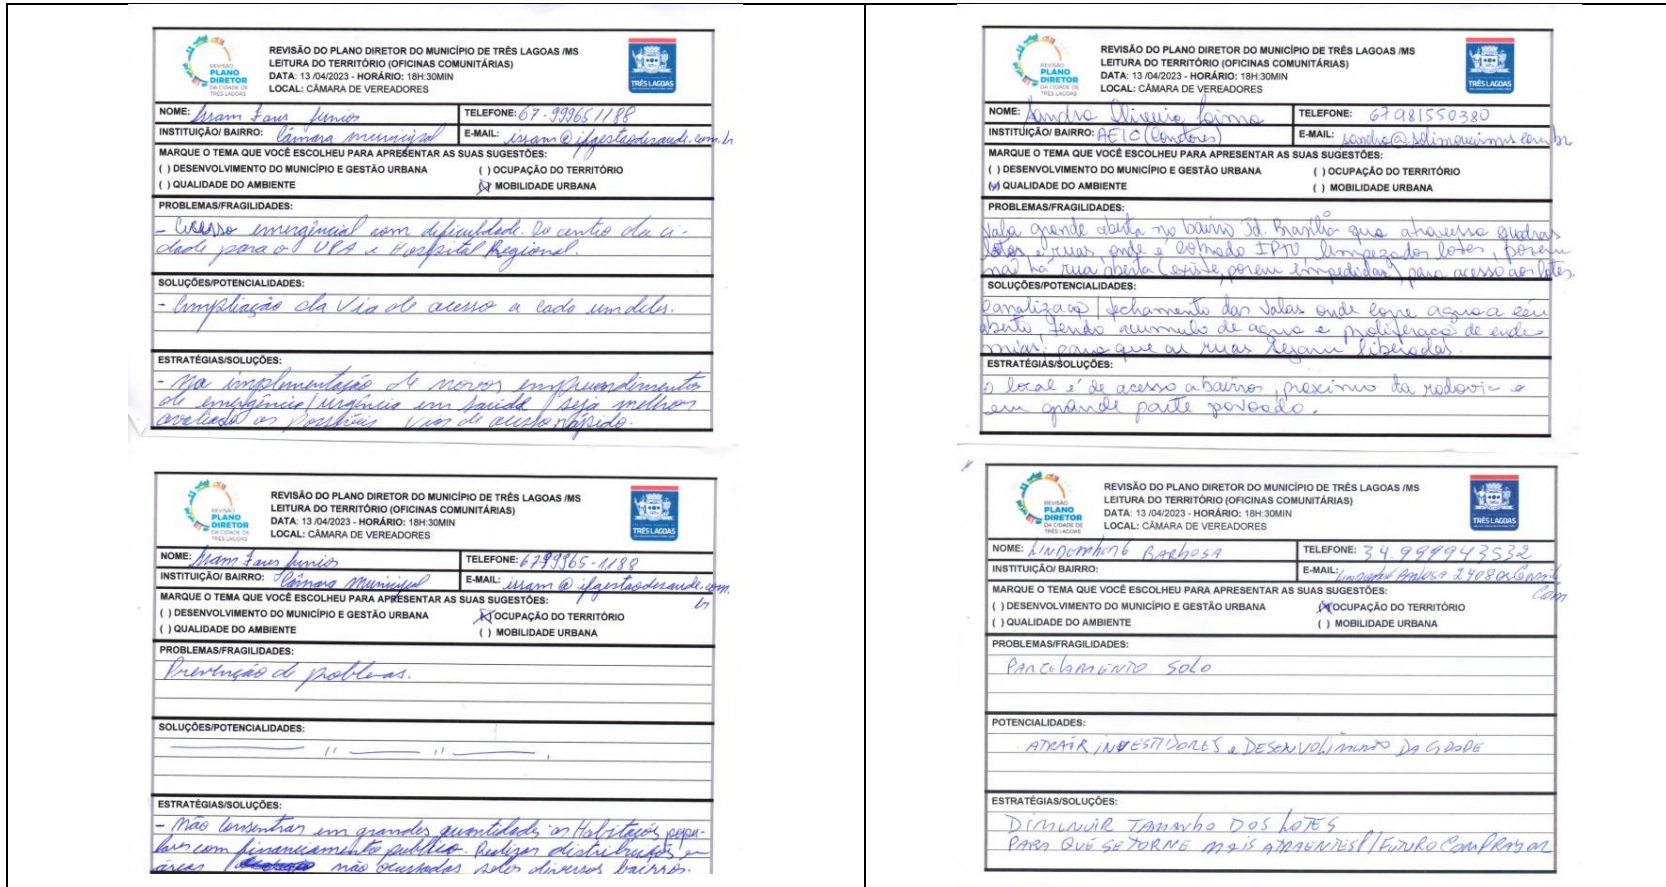 REVISÃO
PLANO
DIRETOR
DA CIDADE DE
TRÊS LAGOAS
REVISÃO DO PLANO DIRETOR DO MUNICÍPIO DE TRÊS LAGOAS /MS
LEITURA DO TERRITÓRIO (OFICINAS COMUNITÁRIAS)
DATA: 13 /04/2023 - HORÁRIO: 18H:30MIN
LOCAL: CÂMARA DE VEREADORES
TRÊS LAGOAS
NOME: Issam Fares Junior TELEFONE: 67-999651188
INSTITUIÇÃO/ BAIRRO: Câmara municipal E-MAIL: issam@ifgestaodesaude.com.br
MARQUE O TEMA QUE VOCÊ ESCOLHEU PARA APRESENTAR AS SUAS SUGESTÕES:
( ) DESENVOLVIMENTO DO MUNICÍPIO E GESTÃO URBANA ( ) OCUPAÇÃO DO TERRITÓRIO
( ) QUALIDADE DO AMBIENTE (X) MOBILIDADE URBANA
PROBLEMAS/FRAGILIDADES:
- Acesso emergêncial com dificuldade. Do centro da ci-
dade para o UPA e Hospital Regional.
SOLUÇÕES/POTENCIALIDADES:
- Ampliação da Via de acesso a cada um deles.
ESTRATÉGIAS/SOLUÇÕES:
- Na implementação de novos empreendimentos
de emergência/urgência em saúde, seja melhor
avaliado as Possíveis Vias de acesso rápido.
REVISÃO
PLANO
DIRETOR
DA CIDADE DE
TRÊS LAGOAS
REVISÃO DO PLANO DIRETOR DO MUNICÍPIO DE TRÊS LAGOAS /MS
LEITURA DO TERRITÓRIO (OFICINAS COMUNITÁRIAS)
DATA: 13 /04/2023 - HORÁRIO: 18H:30MIN
LOCAL: CÂMARA DE VEREADORES
TRÊS LAGOAS
NOME: Issam Fares Junior TELEFONE: 6799965-1188
INSTITUIÇÃO/ BAIRRO: Câmara Municipal E-MAIL: issam@ifgestaodesaude.com.
br
MARQUE O TEMA QUE VOCÊ ESCOLHEU PARA APRESENTAR AS SUAS SUGESTÕES:
( ) DESENVOLVIMENTO DO MUNICÍPIO E GESTÃO URBANA (X) OCUPAÇÃO DO TERRITÓRIO
( ) QUALIDADE DO AMBIENTE ( ) MOBILIDADE URBANA
PROBLEMAS/FRAGILIDADES:
Prevenção de problemas.
SOLUÇÕES/POTENCIALIDADES:
——— " ——— " ———.
ESTRATÉGIAS/SOLUÇÕES:
- Não consentrar em grandes quantidades as Habitações popu-
lares com financiamento publico. Realizar distribuição em
áreas não ocupadas pelos diversos bairros.
REVISÃO
PLANO
DIRETOR
DA CIDADE DE
TRÊS LAGOAS
REVISÃO DO PLANO DIRETOR DO MUNICÍPIO DE TRÊS LAGOAS /MS
LEITURA DO TERRITÓRIO (OFICINAS COMUNITÁRIAS)
DATA: 13 /04/2023 - HORÁRIO: 18H:30MIN
LOCAL: CÂMARA DE VEREADORES
TRÊS LAGOAS
NOME: Sandra Oliveira TELEFONE: 67981550380
INSTITUIÇÃO/ BAIRRO: AEIC (Corretores) E-MAIL:
MARQUE O TEMA QUE VOCÊ ESCOLHEU PARA APRESENTAR AS SUAS SUGESTÕES:
( ) DESENVOLVIMENTO DO MUNICÍPIO E GESTÃO URBANA ( ) OCUPAÇÃO DO TERRITÓRIO
(v) QUALIDADE DO AMBIENTE ( ) MOBILIDADE URBANA
PROBLEMAS/FRAGILIDADES:
Vala grande aberta no bairro Jd. Brasília que atravessa quadras
lotes e ruas, onde é cobrado IPTU, limpeza dos lotes, porem
não há rua aberta (existe, porem impedidas) para acesso aos lotes.
SOLUÇÕES/POTENCIALIDADES:
Canalização/fechamento das valas onde corre agua a céu
aberto, tendo acumulo de agua e proliferação de ende-
mias, para que as ruas sejam liberadas.
ESTRATÉGIAS/SOLUÇÕES:
o local é de acesso a bairros, proximo da rodovia e
em grande parte povoado.
REVISÃO
PLANO
DIRETOR
DA CIDADE DE
TRÊS LAGOAS
REVISÃO DO PLANO DIRETOR DO MUNICÍPIO DE TRÊS LAGOAS /MS
LEITURA DO TERRITÓRIO (OFICINAS COMUNITÁRIAS)
DATA: 13 /04/2023 - HORÁRIO: 18H:30MIN
LOCAL: CÂMARA DE VEREADORES
TRÊS LAGOAS
NOME: LINDEMBERG BARBOSA TELEFONE: 34.999943532
INSTITUIÇÃO/ BAIRRO: E-MAIL:
com
MARQUE O TEMA QUE VOCÊ ESCOLHEU PARA APRESENTAR AS SUAS SUGESTÕES:
( ) DESENVOLVIMENTO DO MUNICÍPIO E GESTÃO URBANA (X) OCUPAÇÃO DO TERRITÓRIO
( ) QUALIDADE DO AMBIENTE ( ) MOBILIDADE URBANA
PROBLEMAS/FRAGILIDADES:
PARCELAMENTO SOLO
POTENCIALIDADES:
ATRAIR INVESTIDORES e DESENVOLIMENTO DA CIDADE
ESTRATÉGIAS/SOLUÇÕES:
DIMINUIR TAMANHO DOS LOTES
PARA QUE SE TORNE MAIS ATRAENTES P/ FUTURO COMPRADOR